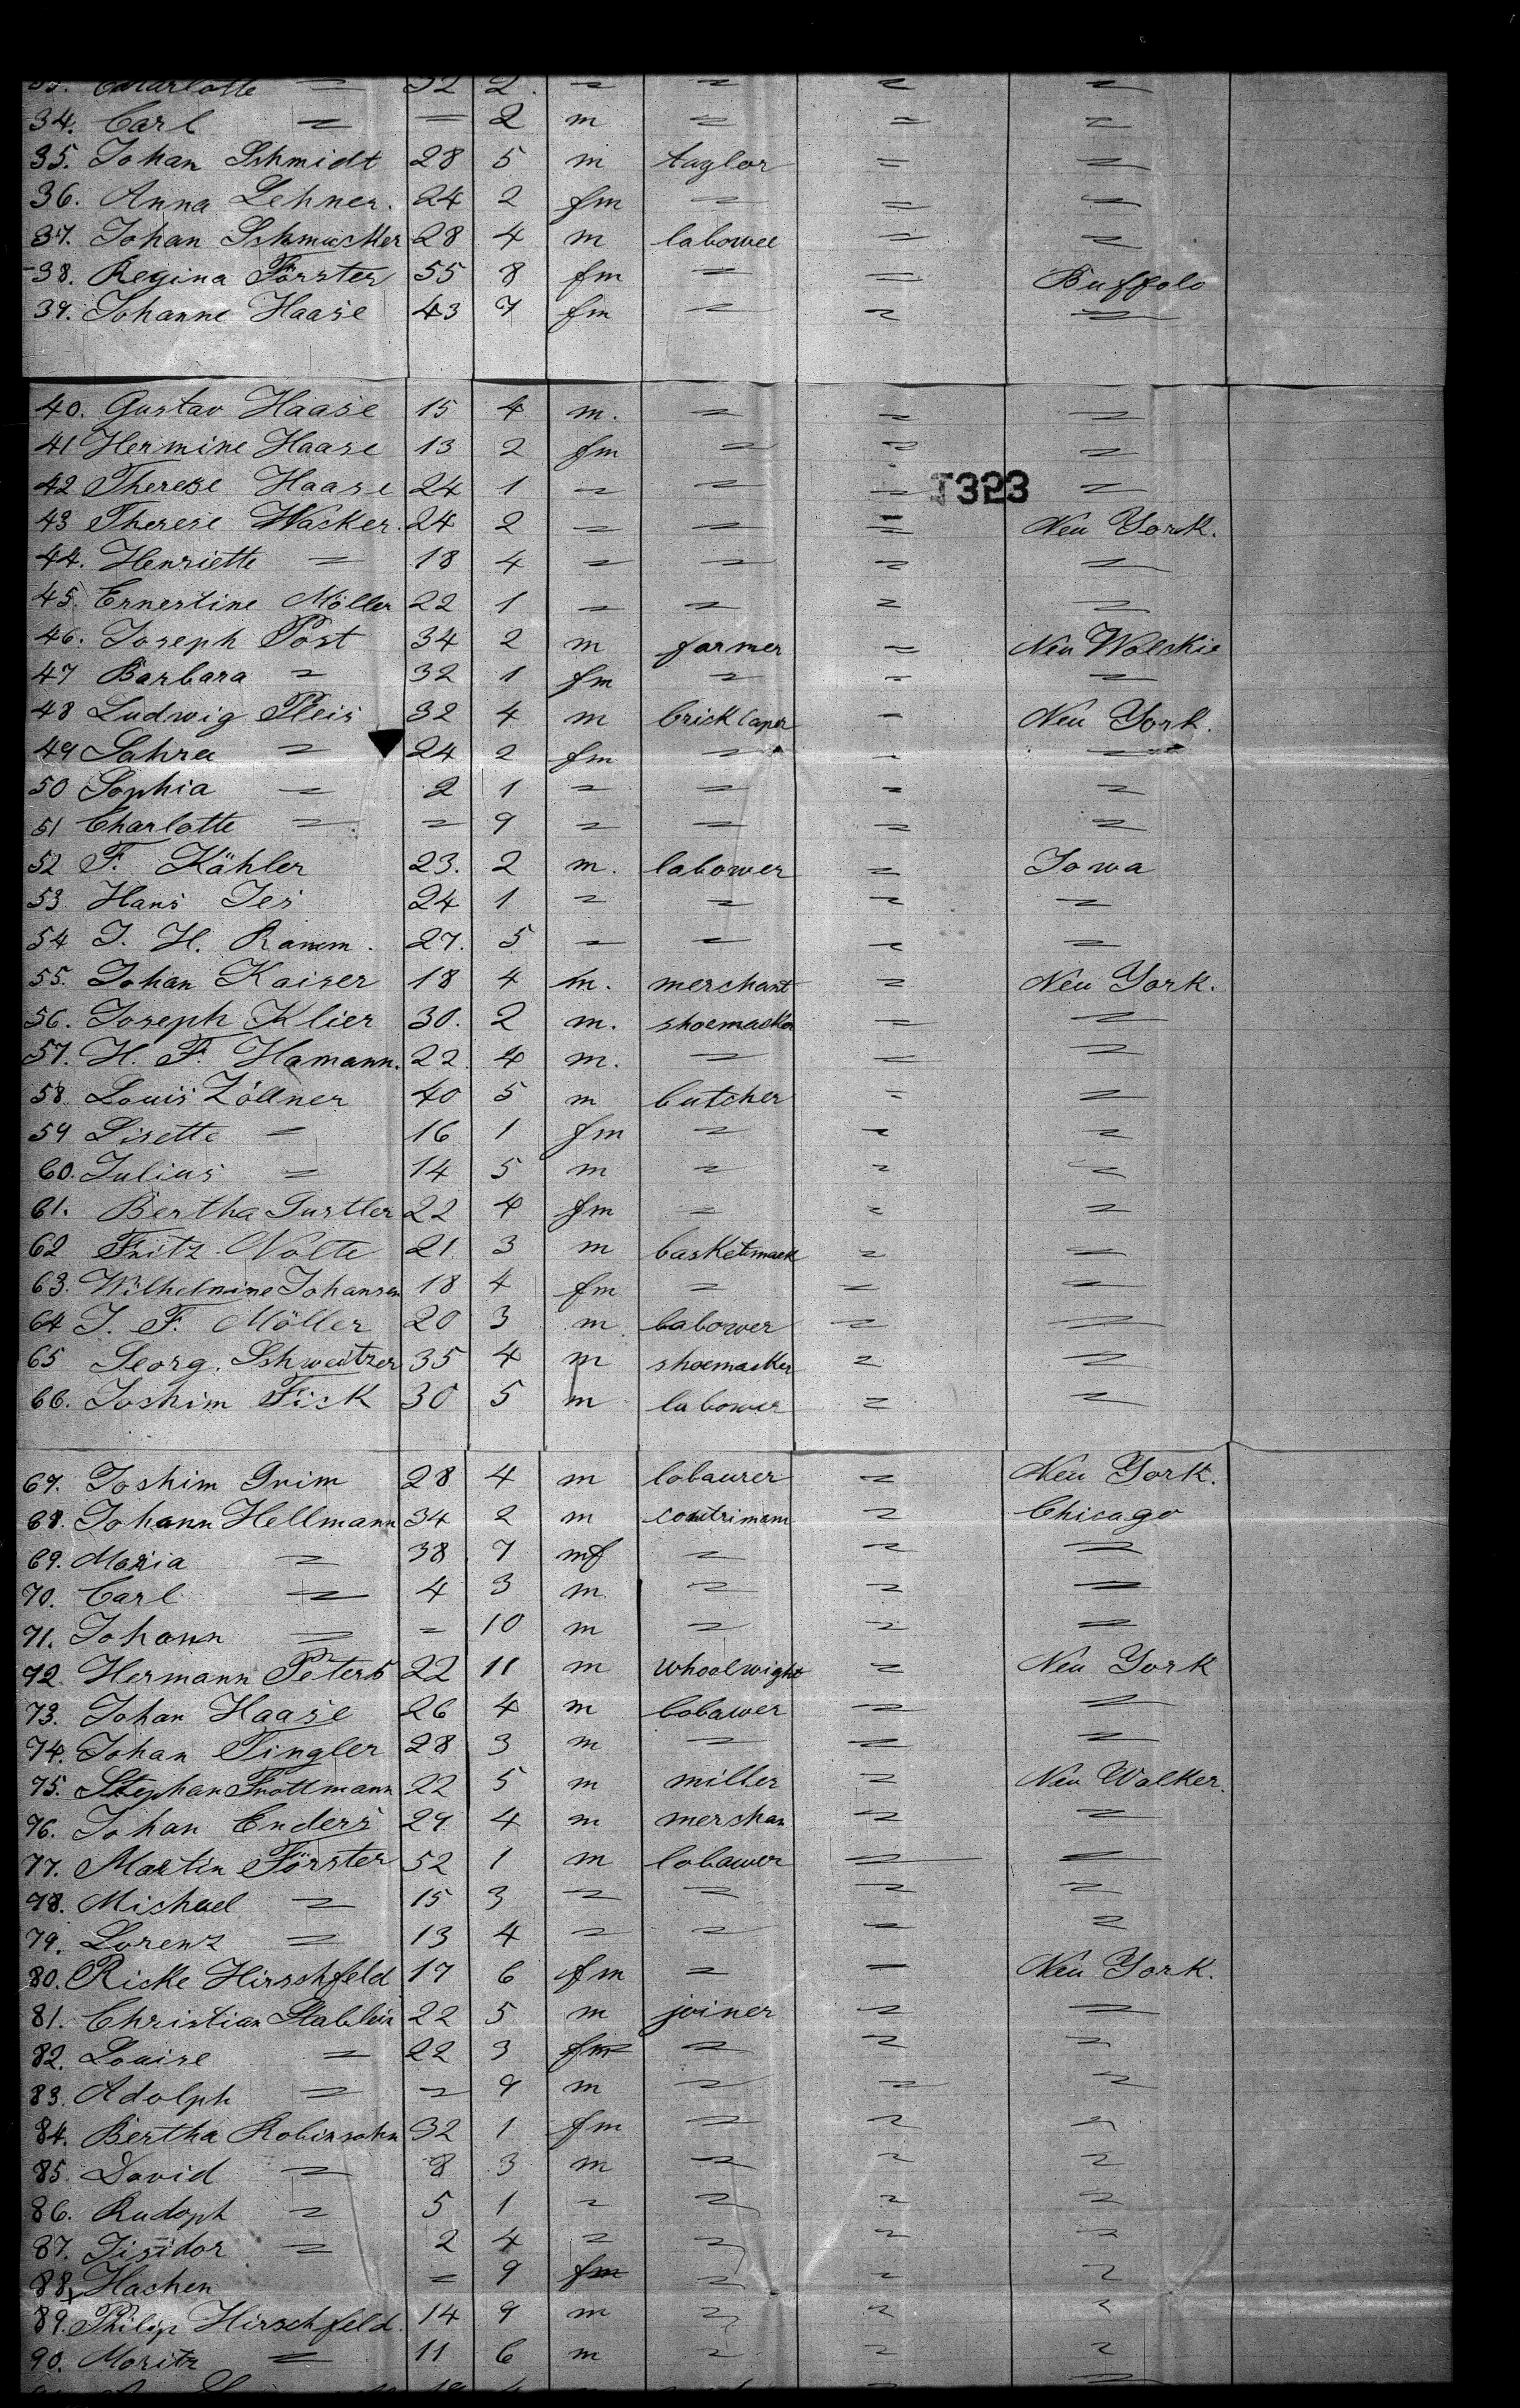 33. Charlotte = 32 2. = = = =
34. Carl = = 2 m = = =
35. Johan Schmidt 28 5 m taylor = =
36. Anna Lehner. 24 2 fm = = =
37. Johan Schmucker 28 4 m labowee = =
38. Regina Förster 55 8 fm = = Buffolo
39. Johanne Haase 43 7 fm = = =
40. Gustav Haase 15 4 m. = = =
41 Hermine Haase 13 2 fm = = =
42 Therese Haase 24 1 = = = =
T323
43 Therese Wacker. 24 2 = = = Neu York.
44. Henriette = 18 4 = = = =
45. Ernestine Möller 22 1 = = = =
46. Joseph Post 34 2 m farmer = Neu Wolckie
47 Barbara = 32 1 fm = = =
48 Ludwig Pleis 32 4 m bricklaper = Neu York.
49 Sahra = 24 2 fm = = =
50 Sophia = 2 1 = = = =
51 Charlotte = = 9 = = = =
52 F. Kähler 23. 2 m. labower = Iowa
53 Hans Jes 24 1 = = = =
54 J. H. Ramm. 27. 5 = = = =
55. Johan Kaiser 18 4 m. merchant = Neu York.
56. Joseph Klier 30. 2 m. shoemacker = =
57. H. F. Hamann. 22. 4 m. = = =
58. Louis Zöllner 40 5 m butcher = =
59 Lisette = 16 1 fm = = =
60. Julius = 14 5 m = = =
61. Bertha Gurtler 22 4 fm = = =
62 Fritz Nolte 21 3 m basketmack = =
63. Wilhelmine Johansen 18 4 fm = = =
64 J. F. Möller 20 3 m. labower = =
65 Georg. Schweitzer 35 4 m shoemacker = =
66. Joshim Fick 30 5 m labower = =
67. Joshim Grim 28 4 m lobaurer = Neu York.
68. Johann Hellmann 34 2 m countrimann = Chicago
69. Maria = 38 7 mf = = =
70. Carl = 4 3 m. = = =
71. Johann = = 10 m = = =
72. Hermann Peters 22 11 m whoolwight = Neu York
73. Johan Haase 26 4 m lobawer = =
74. Johan Pingler 28 3 m = = =
75. Stephan Trottmann 22 5 m miller = Neu Walker.
76. Johan Enders 27 4 m merchan = =
77. Martin Förster 52 1 m lobawer = =
78. Michael = 15 3 = = = =
79. Lorenz = 13 4 = = = =
80. Ricke Hirschfeld 17 6 fm = = Neu York.
81. Christian Stablein 22 5 m joiner = =
82. Louise = 22 3 fm = = =
83. Adolph = = 9 m = = =
84. Bertha Robinsohn 32 1 fm = = =
85. David = 8 3 m = = =
86. Rudoph = 5 1 = = = =
87. Jisidor = 2 4 = = = =
88. Hachen = 9 fm = = =
89. Philip Hirschfeld. 14 9 m = = =
90. Moritz = 11 6 m = = =